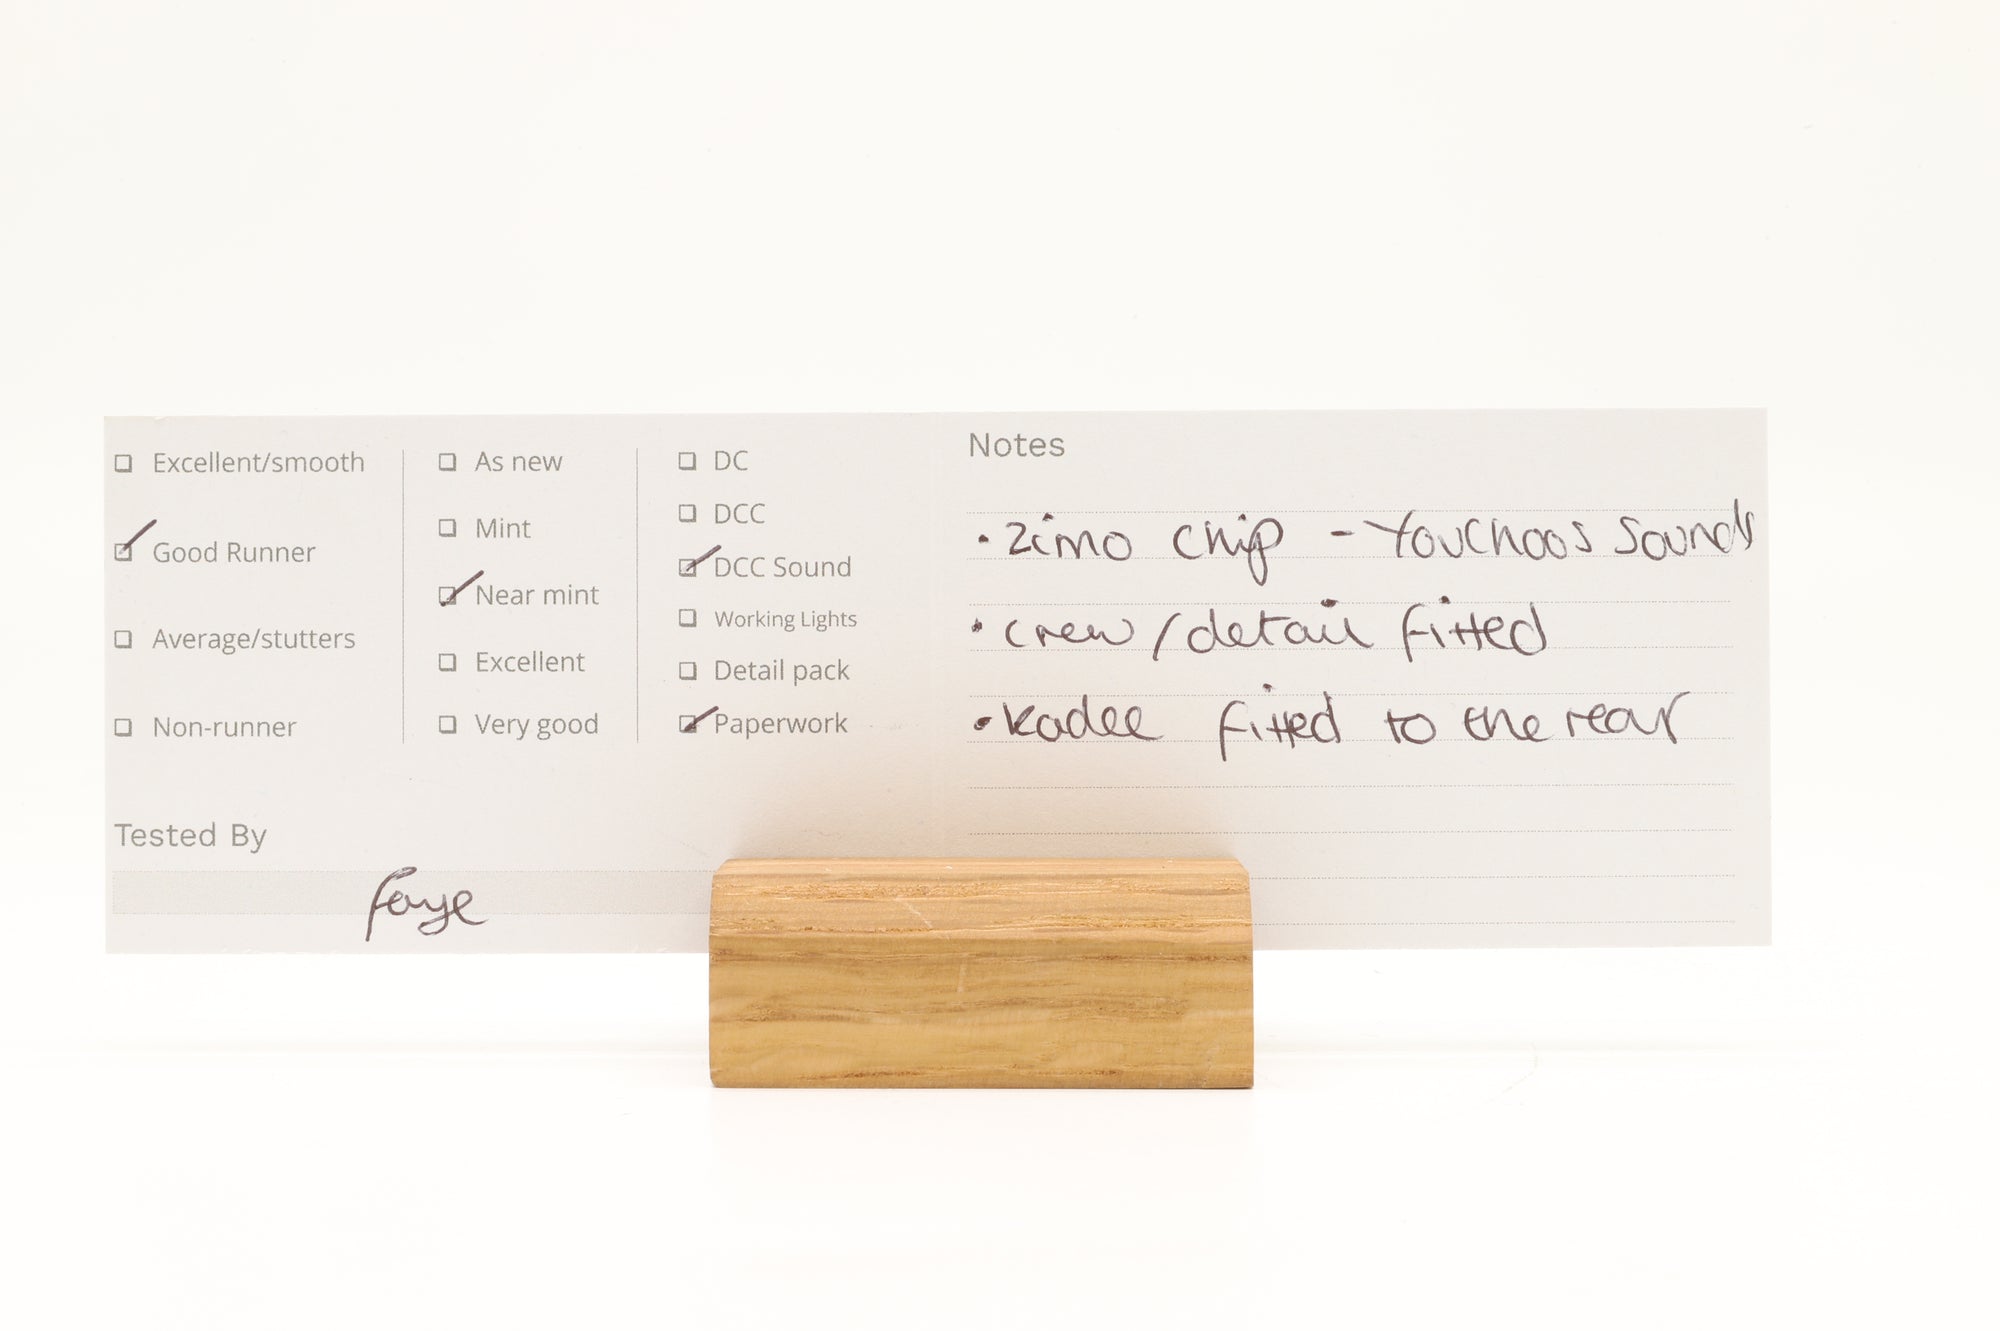 Excellent/smooth
Good Runner
Average/stutters
Non-runner
As new
Mint
Near mint
Excellent
Very good
DC
DCC
DCC Sound
Working Lights
Detail pack
Paperwork
Tested By
Faye
Notes
• Zimo chip - YouChoos Sounds
• crew/detail fitted
• Kadee fitted to the rear